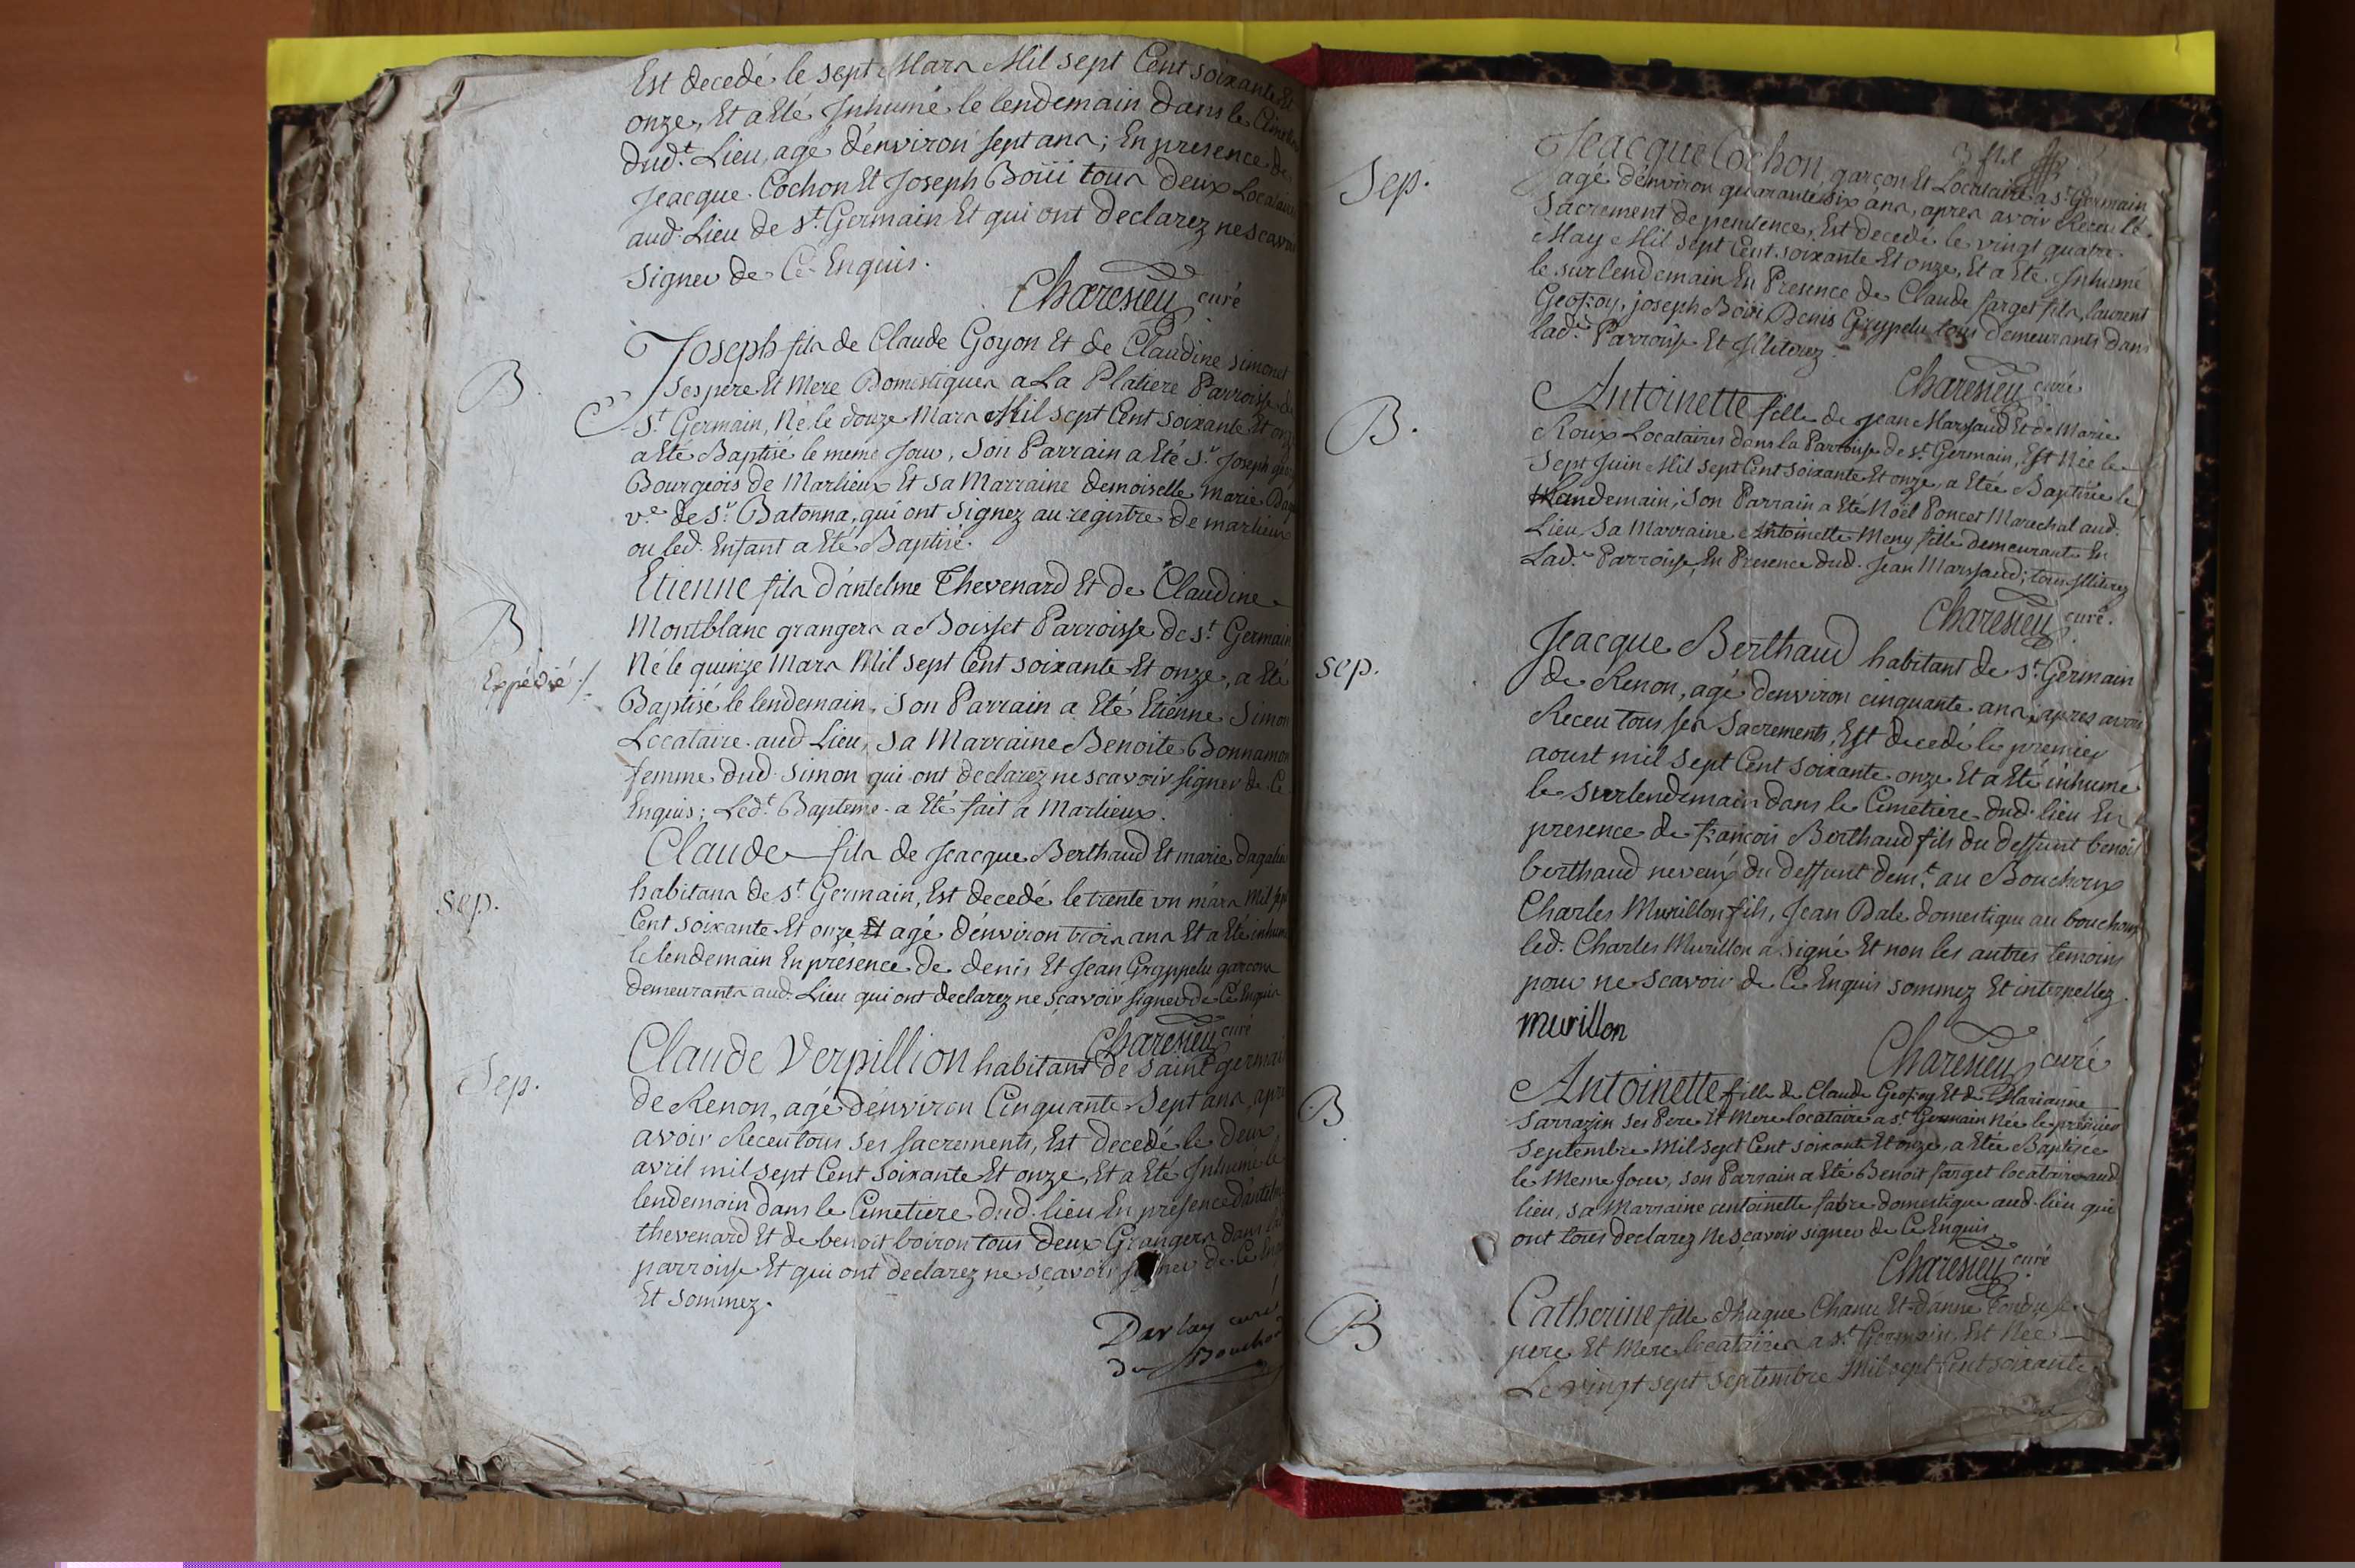 Est decedé le sept Mars Mil sept Cent soixante Et
onze, Et a Eté Inhumé le lendemain dans le
dud.t Lieu, agé d'environ sept ans; En presence de
Jeacque Cochon Et Joseph Boüi tous deux Locataires
aud. Lieu de S.t Germain Et qui ont declarez ne scavoir
signer de Ce Enquis.
Charesieu curé
B
Joseph fils de Claude Goyon Et de Claudine simonet
ses pere Et Mere Domestiques a La Platiere Parroisse de
S.t Germain, Né le douze Mars Mil sept Cent soixante Et onze
a Eté Baptisé le meme Jour, Son Parrain a Eté S.r Joseph
Bourgeois de Marlieux Et sa Marraine demoiselle marie
v.e de S.r Batonna, qui ont signez au registre de marlieux
ou led. Enfant a Eté Baptisé.
B
Expédié ./.
Etienne fils d'antelme Thevenard Et de Claudine
Montblanc grangers a Boisset Parroisse de s.t Germain
Né le quinze Mars Mil sept Cent soixante Et onze, a Eté
Baptisé le lendemain, Son Parrain a Eté Etienne Simon
Locataire aud Lieu, sa Marraine Benoite
femme dud. Simon qui ont declarez ne scavoir signer de Ce
Enquis; Led.t Bapteme a Eté fait a Marlieux.
sep.
Claude fils de Jeacque Berthaud Et marie
habitans de s.t Germain, Est decedé le trente un mars Mil sept
Cent soixante Et onze Et agé d'environ trois ans Et a Eté inhumé
le lendemain En presence de denis Et Jean Gryppelu garcons
demeurants aud. Lieu qui ont declarez ne sçavoir signer de Ce Enquis
Charesieu curé
Sep.
Claude Verpillion habitant de Saint germain
de Renon, agé d'environ Cinquante Sept ans, apres
avoir Receu tous ses sacrements, Est decedé le deux
avril mil sept Cent soixante Et onze, Et a Eté Inhumé le
lendemain dans le Cimetiere dud. lieu En presence d'antelme
thevenard Et de benoit boiron tous deux Grangers dans
parroisse Et qui ont declarez ne sçavoir signer de Ce
Et sommez.
Darlay curé
du Bouchoux
Sep.
Jeacque Cochon garçon Et Locataire a s.t Germain
agé d'environ quarante six ans, apres avoir Receu le
Sacrement de penitence, Est decedé le vingt quatre
May Mil sept Cent soixante Et onze, Et a Eté Inhumé
le surlendemain En Presence de Claude farget fils, laurent
Geofroy, joseph Boüi Denis Gryppelu tous demeurants dans
lad.e Parroisse Et Illiterez.
Charesieu curé
B.
Antoinette fille de Jean Marssaud Et de Marie
Roux Locataires dans la Parroisse de s.t Germain, Est Née le
Sept Juin Mil sept Cent soixante Et onze, a Etée Baptisée le
lendemain; son Parrain a Eté Noël Poncet Marechal aud.
Lieu, sa Marraine Antoinette Meny fille demeurante En
Lad.e Parroisse, En Presence dud. Jean Marssaud; tous Illiterez
Charesieu curé.
sep.
Jeacque Berthaud habitant de s.t Germain
de Renon, agé d'environ cinquante ans, apres avoir
Receu tous ses Sacrements, Est decedé le premier
aoust mil sept Cent soixante onze Et a Eté inhumé
le surlendemain dans le Cimetiere dud. lieu En
presence de françois Berthaud fils du deffunt benoit
berthaud neveux du deffunt dem.t au Bouchoux
Charles Murillon fils, Jean Bale domestique au bouchoux
led. Charles Murillon a signé Et non les autres temoins
pour ne scavoir de Ce Enquis sommez Et interpellez.
murillon
Charesieu curé
B
Antoinette fille de Claude Geofroy Et de Marianne
Sarrazin ses Pere Et Mere locataire a s.t Germain Née le premier
Septembre Mil sept Cent soixante Et onze, a Etée Baptisée
le Meme Jour, son Parrain a Eté Benoit farget locataire aud.
lieu, sa Marraine antoinette fabre domestique aud. lieu qui
ont tous declarez ne sçavoir signer de Ce Enquis
Charesieu curé
B
Catherine fille d'hugue Chanu Et d'anne
pere Et Mere locataires a s.t Germain, Est Née
Le vingt sept Septembre Mil sept Cent soixante